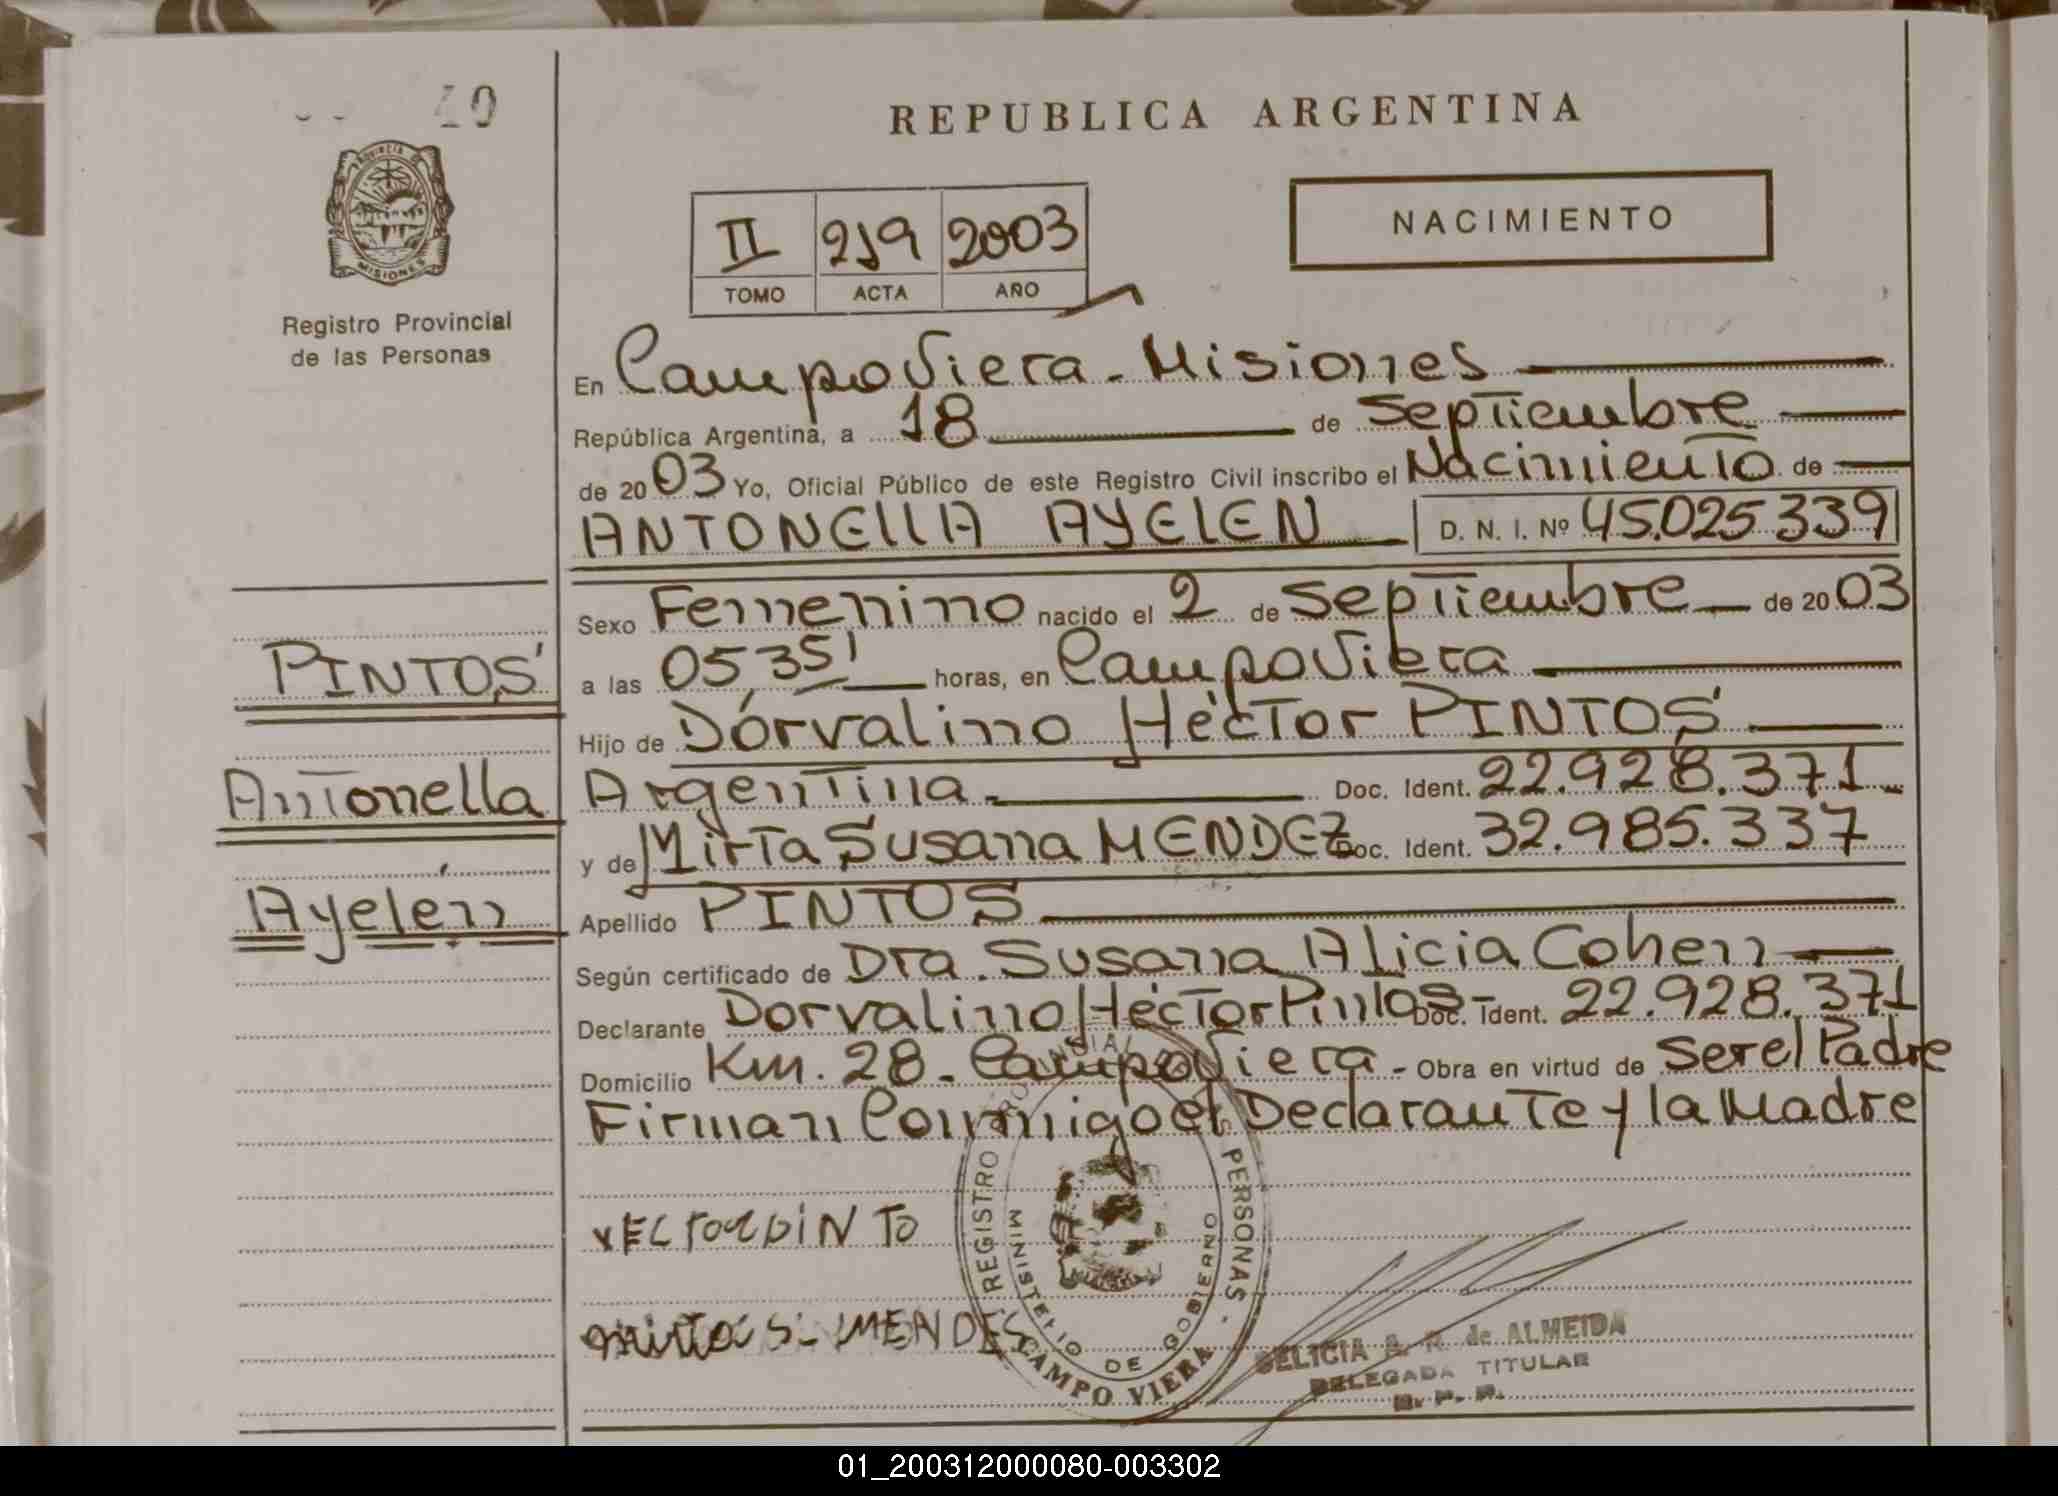 40
PROVINCIA DE
MISIONES
Registro Provincial
de las Personas
PINTOS
Antonella
Ayelén
REPUBLICA ARGENTINA
NACIMIENTO
II 219 2003
TOMO ACTA AÑO
En Campo Viera - Misiones
República Argentina, a 18 de Septiembre
de 2003 Yo, Oficial Público de este Registro Civil inscribo el Nacimiento de
ANTONELLA AYELEN D. N. I. Nº 45.025.339
Sexo Femenino nacido el 2 de Septiembre de 2003
a las 05,35' horas, en Campo Viera
Hijo de Dorvalino Héctor PINTOS
Argentina - Doc. Ident. 22.928.371
y de Mirta Susana MENDEZ Doc. Ident. 32.985.337
Apellido PINTOS
Según certificado de Dra. Susana Alicia Cohen
Declarante Dorvalino Héctor Pintos - Doc. Ident. 22.928.371
Domicilio Km. 28 - Campo Viera - Obra en virtud de Ser el Padre
Firman Conmigo el Declarante y la Madre
mirta S. MENDES
REGISTRO PERSONAS
MINISTERIO DE GOBIERNO
CAMPO VIERA
DELICIA de ALMEIDA
DELEGADA TITULAR
01_200312000080-003302